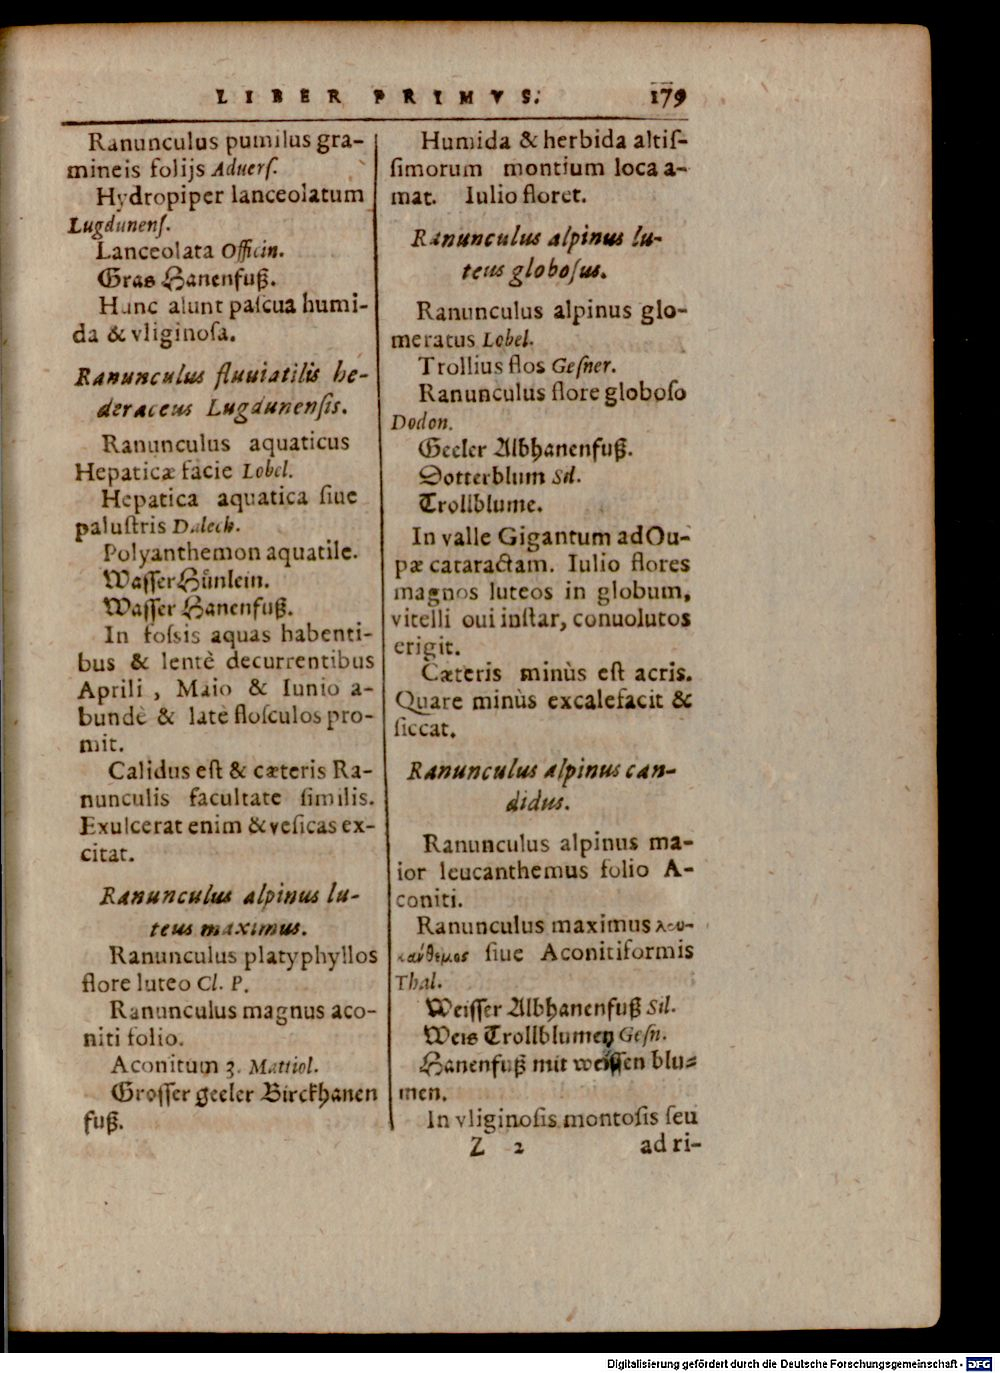 LIBER PRIMVS. 179
Ranunculus pumilus gra-
mineis folijs Aduerſ.
Hydropiper lanceolatum
Lugdunenſ.
Lanceolata Officin.
Gras Hanenfuß.
Hunc alunt paſcua humi-
da & vliginoſa.
Ranunculus fluuiatilis he-
deraceus Lugdunenſis.
Ranunculus aquaticus
Hepaticæ facie Lobel.
Hepatica aquatica ſiue
paluſtris Dalech.
Polyanthemon aquatile.
Waſſer Hünlein.
Waſſer Hanenfuß.
In foſsis aquas habenti-
bus & lentè decurrentibus
Aprili, Maio & Iunio a-
bundè & latè floſculos pro-
mit.
Calidus eſt & cæteris Ra-
nunculis facultate ſimilis.
Exulcerat enim & veſicas ex-
citat.
Ranunculus alpinus lu-
teus maximus.
Ranunculus platyphyllos
flore luteo Cl. P.
Ranunculus magnus aco-
niti folio.
Aconitum 3. Mattiol.
Groſſer geeler Birckhanen
fuß.
Humida & herbida altiſ-
ſimorum montium loca a-
mat. Iulio floret.
Ranunculus alpinus lu-
teus globoſus.
Ranunculus alpinus glo-
meratus Lobel.
Trollius flos Geſner.
Ranunculus flore globoſo
Dodon.
Geeler Albhanenfuß.
Dotterblum Sil.
Trollblume.
In valle Gigantum ad Ou-
pæ cataractam. Iulio flores
magnos luteos in globum,
vitelli oui inſtar, conuolutos
erigit.
Cæteris minùs eſt acris.
Quare minùs excalefacit &
ſiccat.
Ranunculus alpinus can-
didus.
Ranunculus alpinus ma-
ior leucanthemus folio A-
coniti.
Ranunculus maximus λευ-
κανθεμος ſiue Aconitiformis
Thal.
Weiſſer Albhanenfuß Sil.
Weis Trollblumen Geſn.
Hanenfuß mit weiſſen blu-
men.
In vliginoſis montoſis ſeu
Z 2 ad ri-
Digitalisierung gefördert durch die Deutsche Forschungsgemeinschaft - DFG